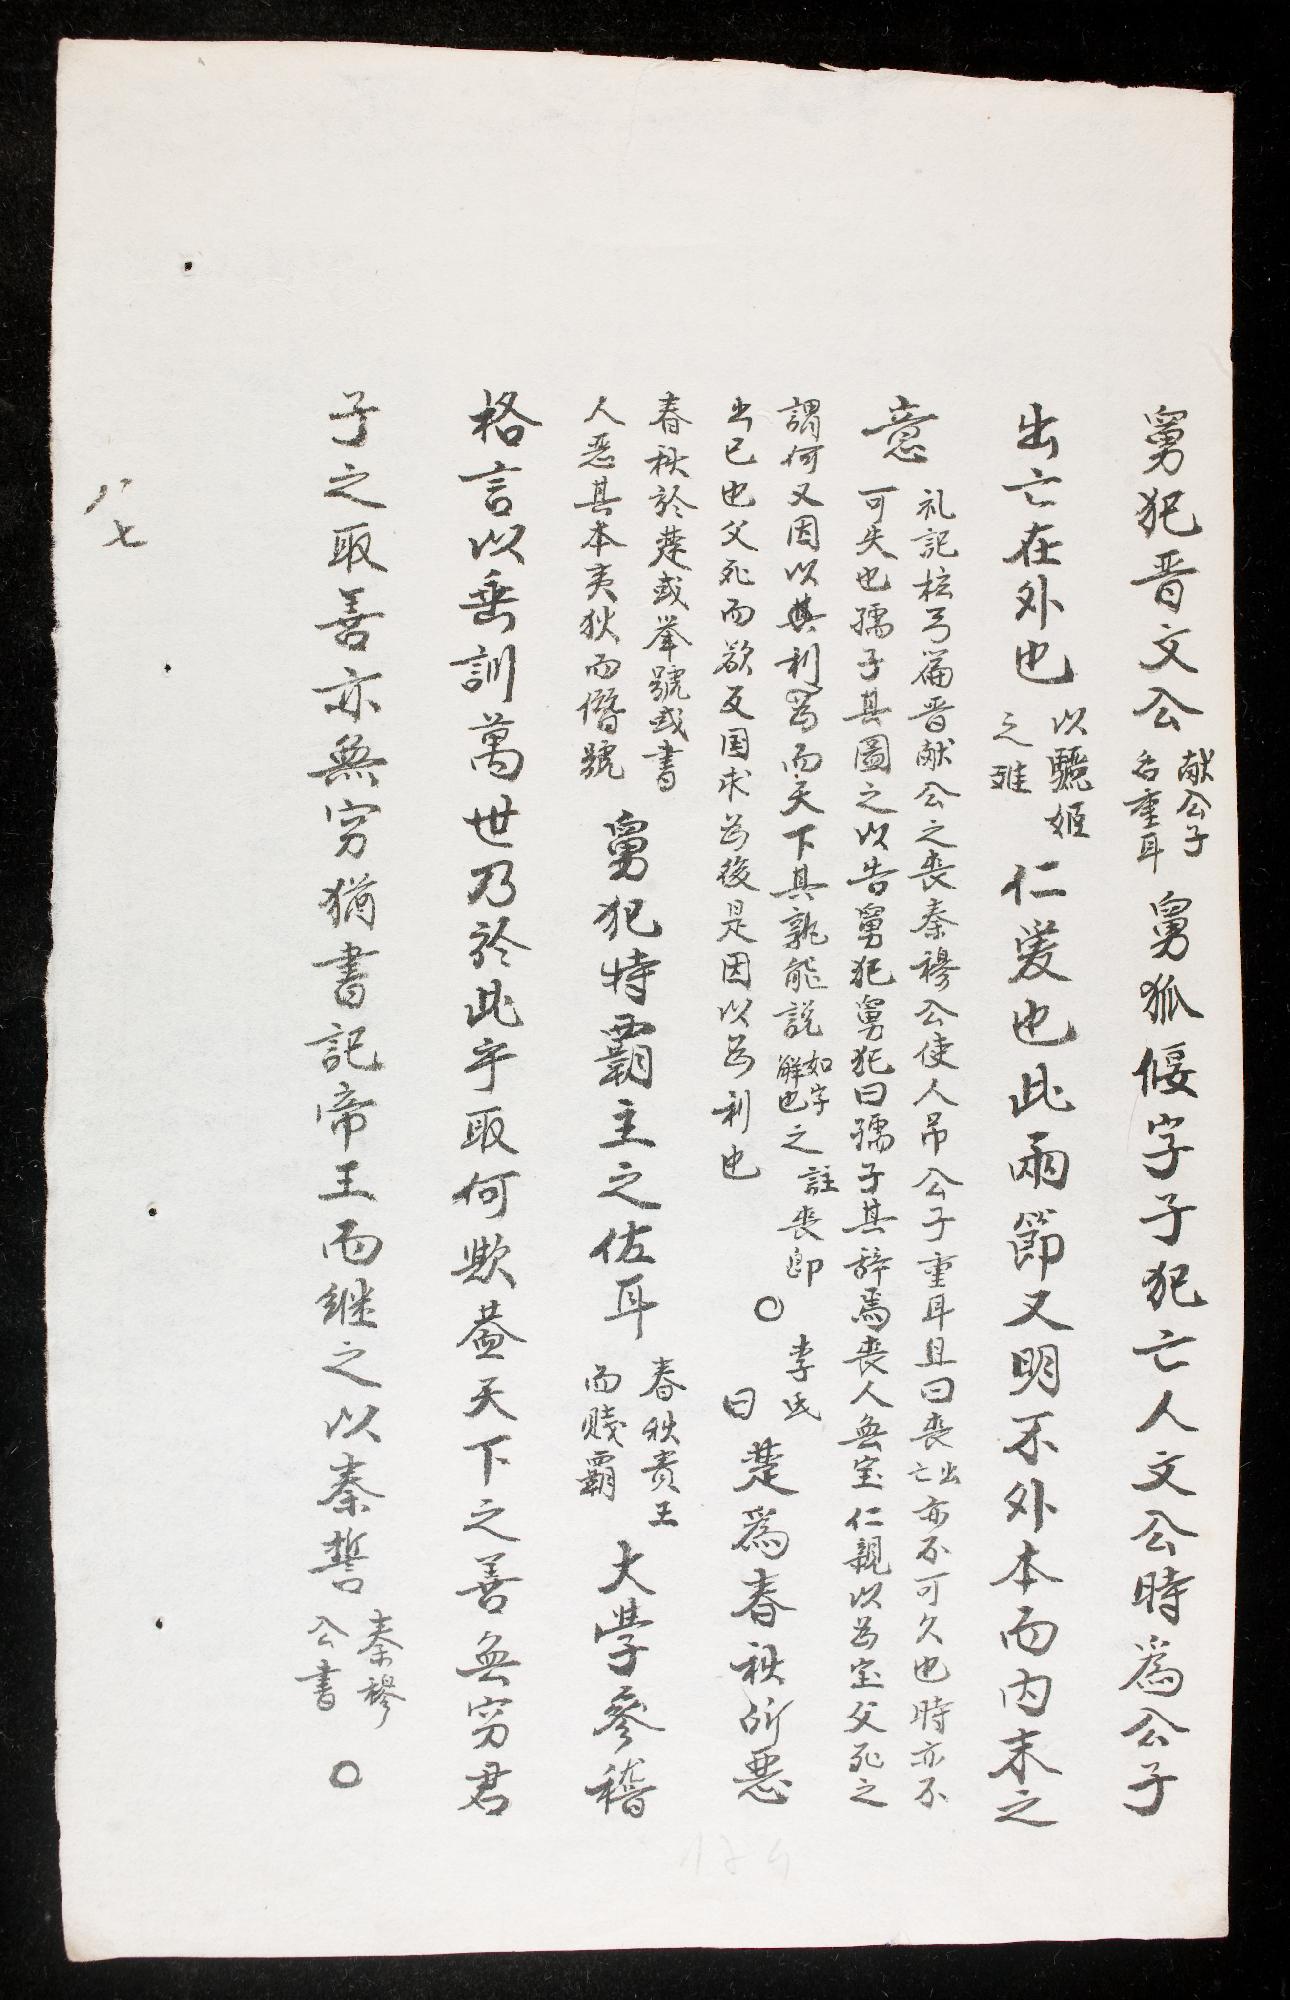 舅犯晋文公
献公子
名重耳
舅狐偃字子犯亡人文公時爲公子
出亡在外也
以驪姬
之难
仁愛也此兩節又明不外本而内末之
意
礼記檀弓篇晋献公之喪秦穆公使人吊公子重耳且曰喪
出
亡
亦不可久也時亦不
可失也孺子其圖之以告舅犯舅犯曰孺子其辞焉喪人無宝仁親以为宝父死之
謂何又因以其利为而天下其孰能説
如字
觧也
之
註喪即
出已也父死而欲反国求为後是因以为利也
〇
李氏
曰
楚爲春秋所惡
春秋於楚或举號或書
人恶其本夷狄而僭號
舅犯特覇主之佐耳
春秋责王
而賤覇
大學參稽
格言以垂訓萬世乃於此乎取何欤蓋天下之善無穷君
子之取善亦無穷猶書記帝王而継之以秦誓
秦穆
公書
〇
八七